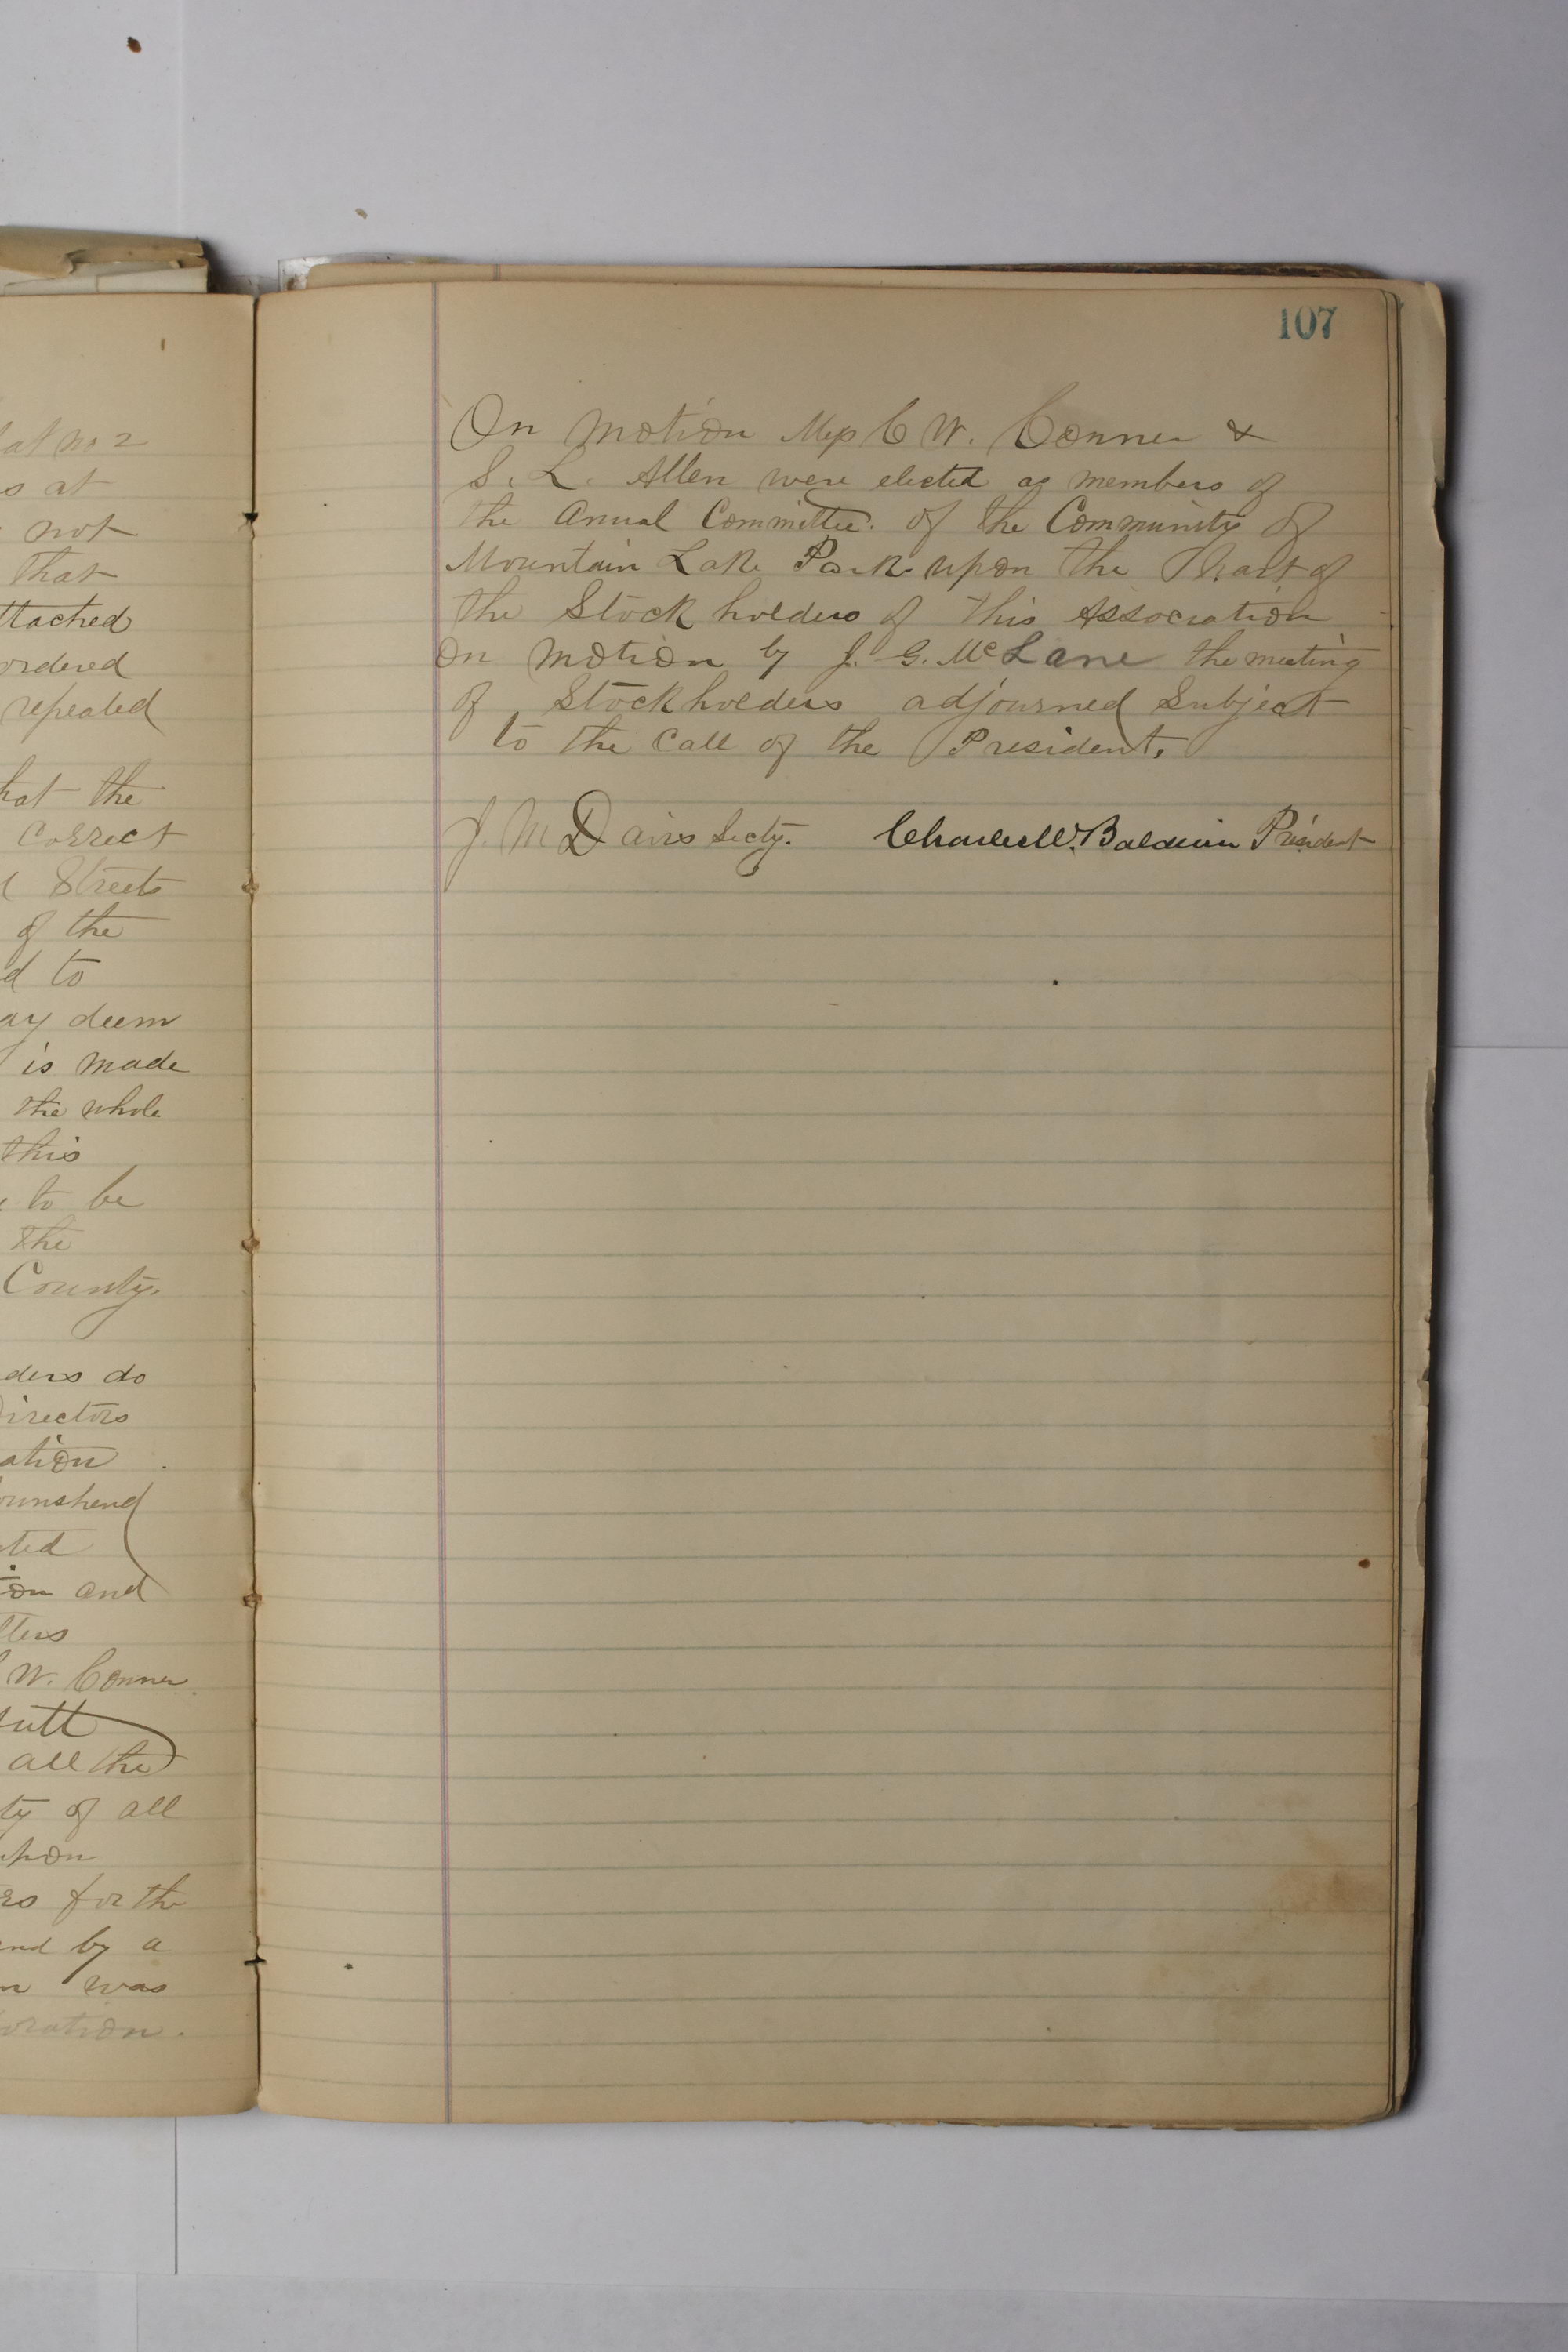 at no 2
s at
not
that
ttached
ordered
repeated
hat the
correct
Streets
of the
d to
ay deem
is made
the whole
this
to be
the
County.
ders do
Directors
ation
ownshend
ted
on and
tters
W. Conner
sutt
all the
ty of all
upon
rs for the
and by a
n was
oration.
107
On motion Mess C W. Conner &
S. L. Allen were elected as members of
the Annual Committee. of the Community of
Mountain Lake Park upon the Part of
the Stock holders of this Association
On motion by J. G. McLane the meeting
of Stockholders adjourned Subject
to the Call of the President.
J. M Davis Secty. Charles W. Baldwin President